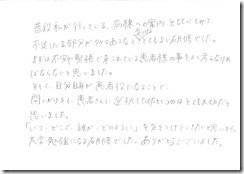 普段私が行っている、病棟への案内とくらべてみて、
不足している部分が多々あるなと、とてもよい研修でした。
まずは不安・緊張で来られている患者様の事をよく考えなければ
ならないと思いました。
そして、自分自身が患者役になることで、
問いかけをし、患者さんに選択していただくというのはとても大切だと
思いました。
「いつ、どこで、誰が、どのように」を気をつけていきたいと思います。
大変勉強になる研修でした。ありがとうございました。